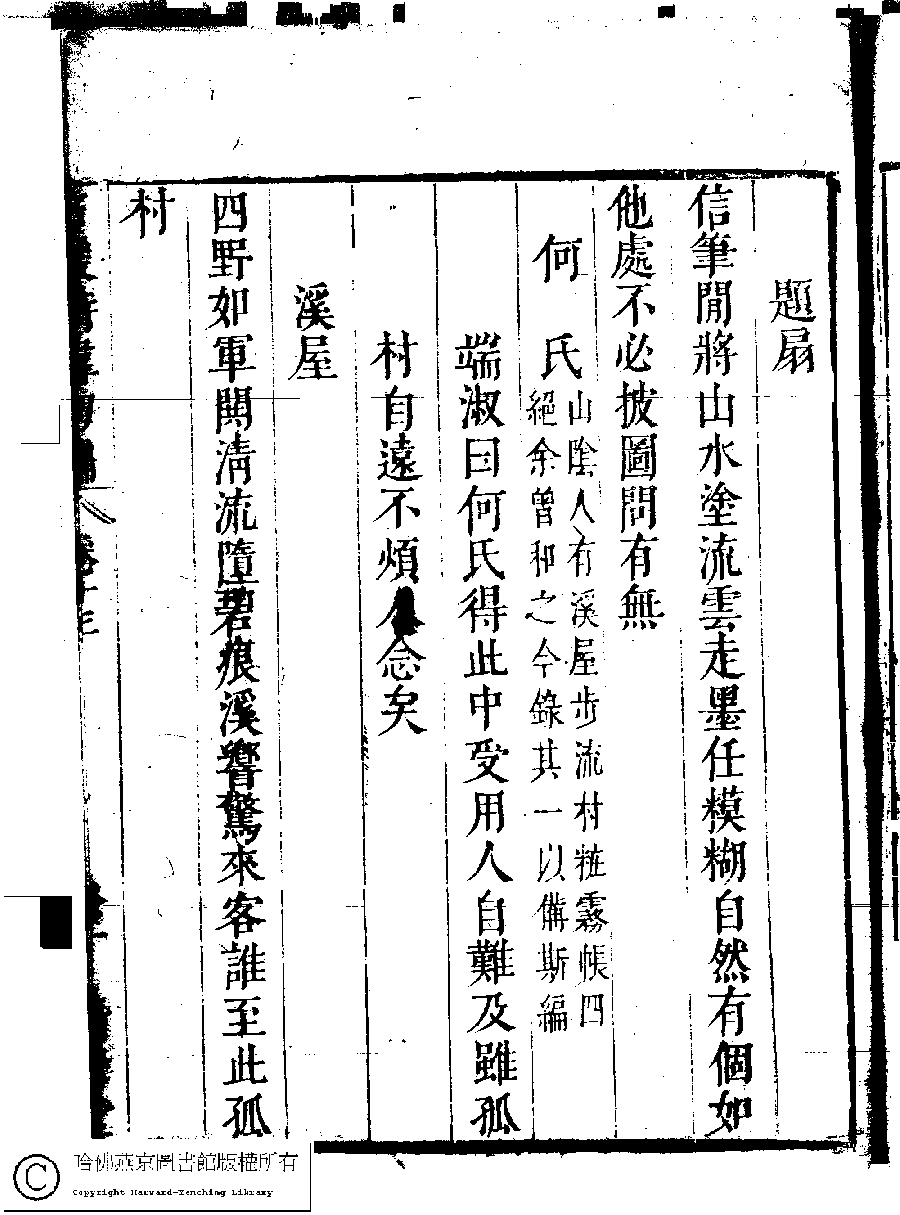 題扇
信筆閒將山水塗流雲走墨任模糊自然有個如
他處不必披圖問有無
何氏
山陰人有溪屋步流村粧霧帳四
絕余曾和之今錄其一以備斯編
端淑曰何氏得此中受用人自難及雖孤
村自遠不煩念矣
溪屋
四野如軍闢清流墮碧痕溪響驚來客誰至此孤
村
卷十三
哈佛燕京圖書館版權所有
Copyright Harvard-Yenching Library